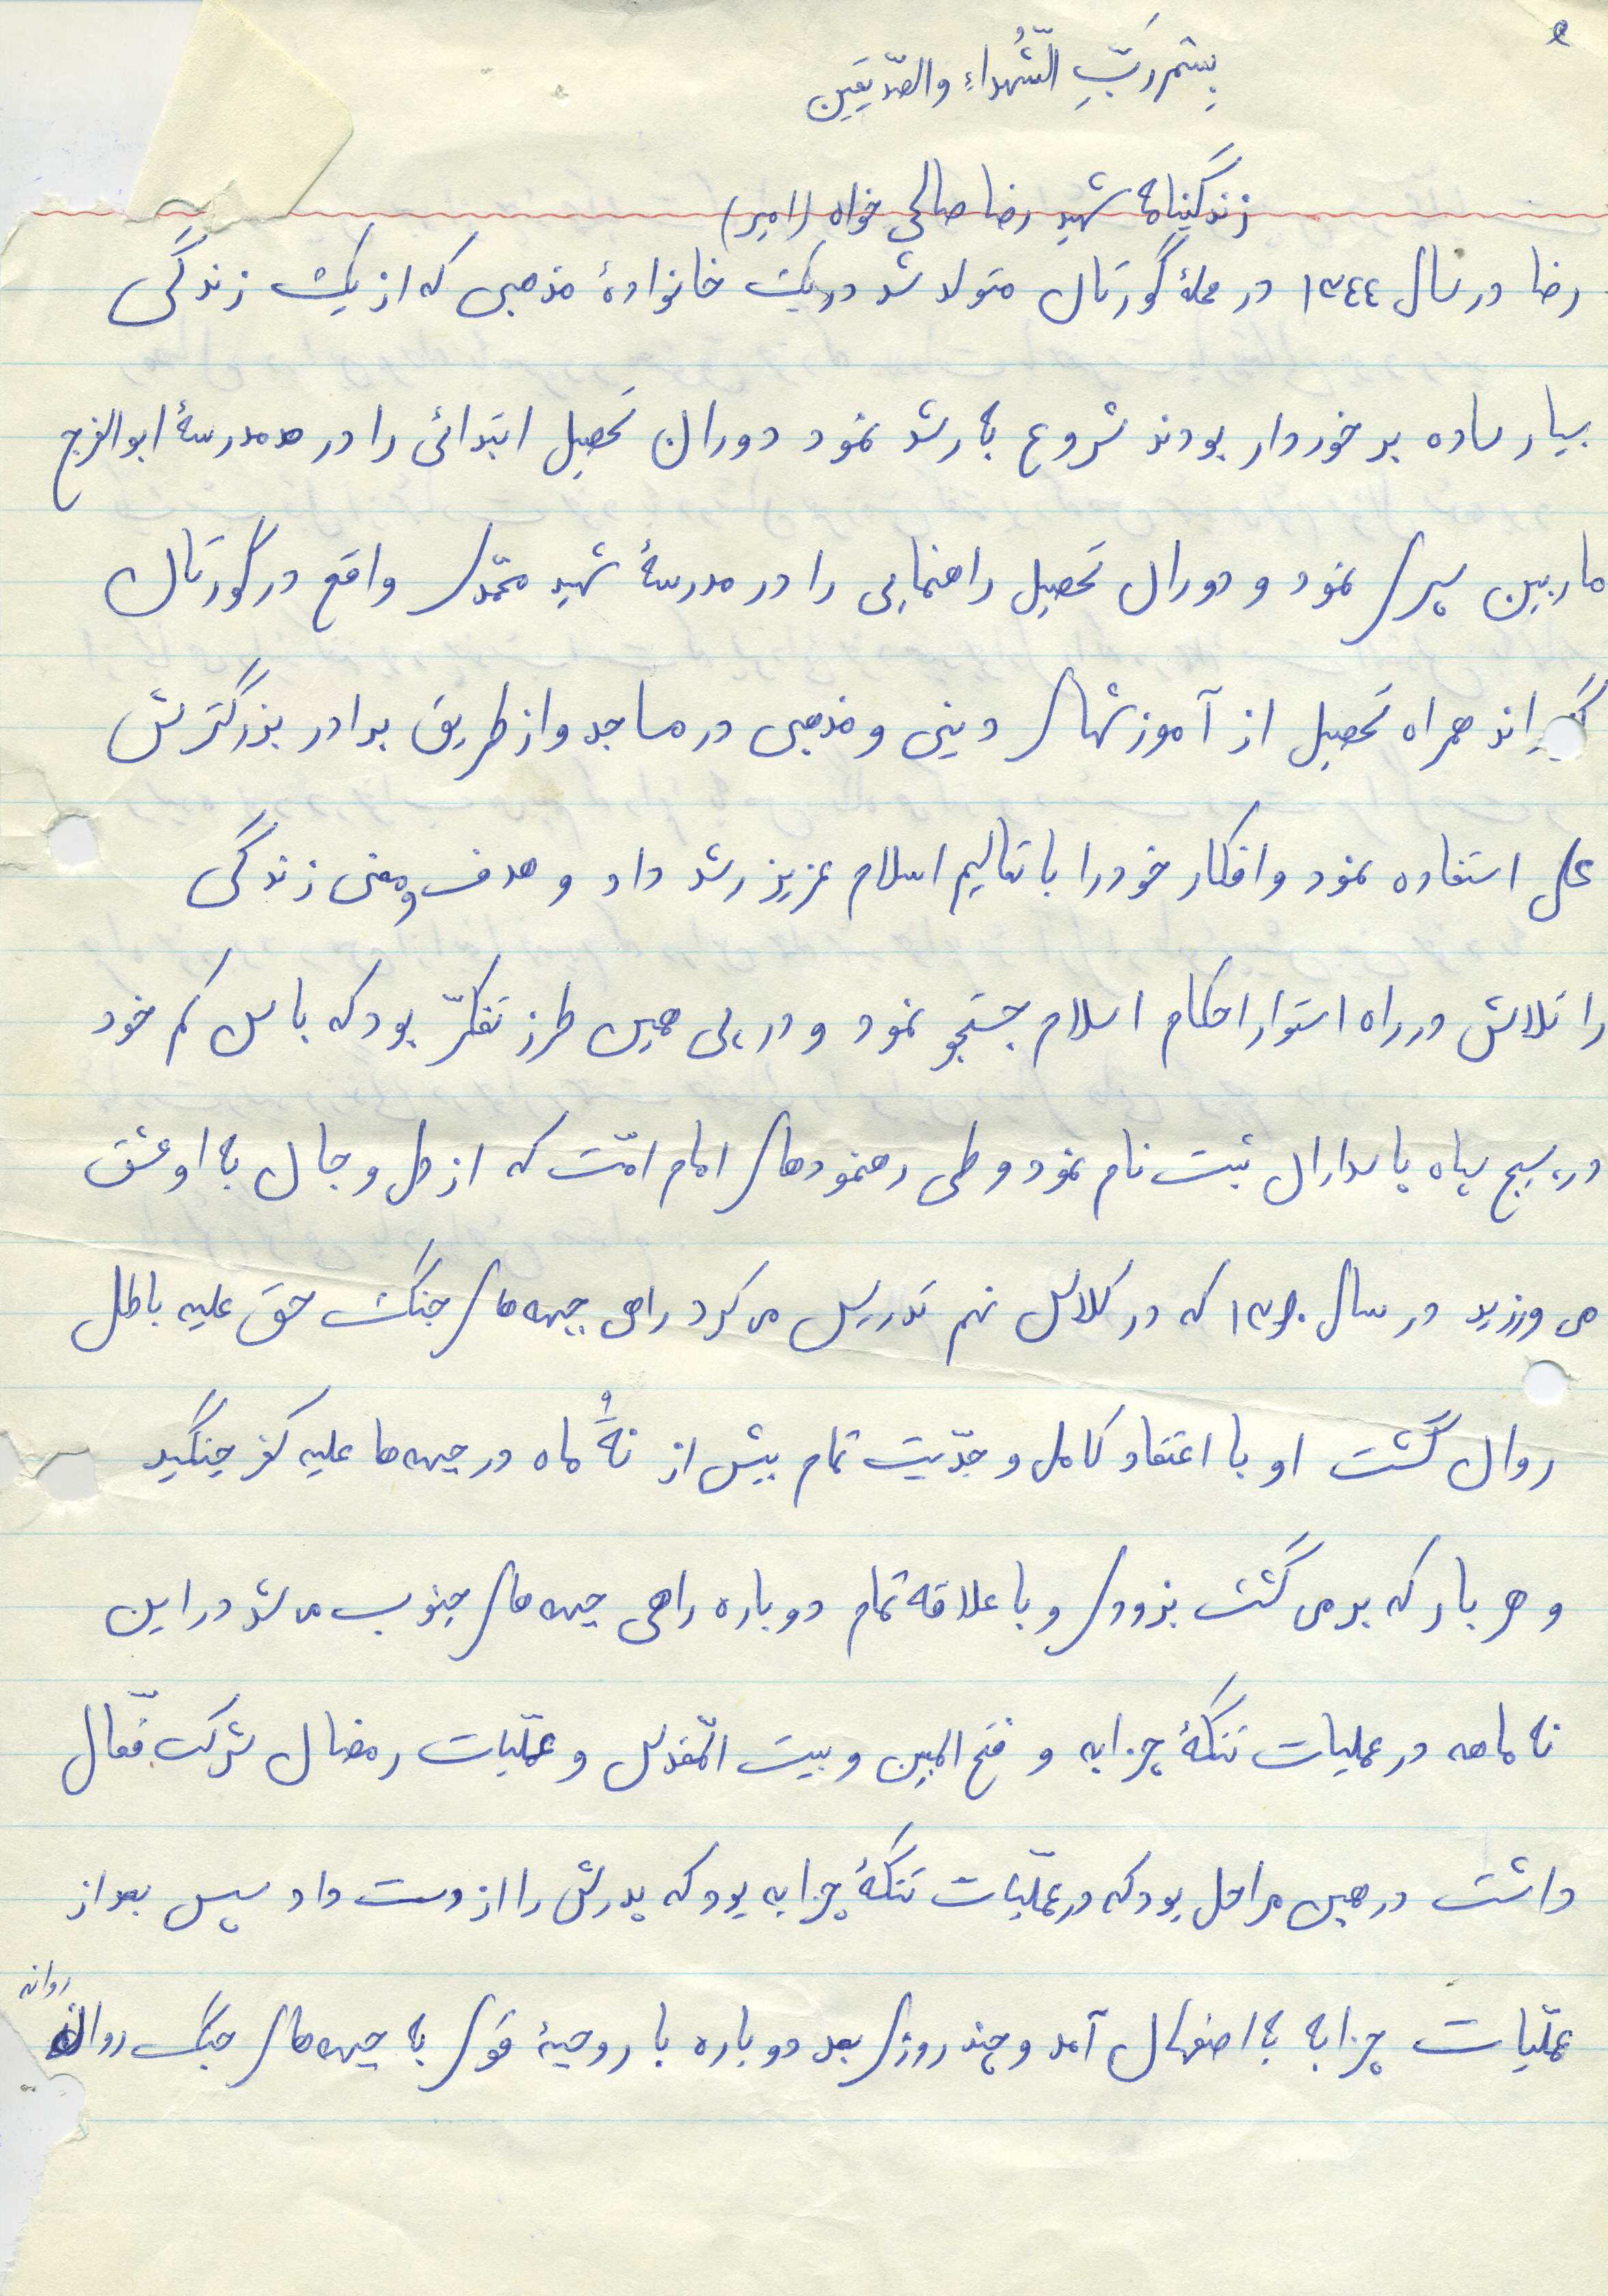 بِسْمِ رَبِّ الشُّهداءِ والصّدیقین
زندگینامهٔ شهید رضا صالحی خواه (امیر)
رضا در سال ۱۳٤٤ در محلهٔ گورتان متولد شد در یک خانوادهٔ مذهبی که از یک زندگی
بسیار ساده برخوردار بودند شروع به رشد نمود دوران تحصیل ابتدائی را در مدرسهٔ ابوالفرج
ماربین سپری نمود و دوران تحصیل راهنمایی را در مدرسهٔ شهید محمّدی واقع در گورتان
گذراند همراه تحصیل از آموزشهای دینی و مذهبی در مساجد و از طریق برادر بزرگترش
علی استفاده نمود و افکار خود را با تعالیم اسلام عزیز رشد داد و هدف و معنی زندگی
را تلاش در راه استوار احکام اسلام جستجو نمود و در پی همین طرز تفکّر بود که با سن کم خود
در بسیج سپاه پاسداران ثبت نام نمود و طی رهنمودهای امام امّت که از دل و جان به او عشق
می ورزید در سال ۱۳۶۰ که در کلاس نهم تدریس می کرد راهی جبهه های جنگ حق علیه باطل
روان گشت او با اعتقاد کامل و جدّیت تمام بیش از نُه ماه در جبهه ها علیه کفر جنگید
و هر بار که بر می گشت بزودی و با علاقه تمام دوباره راهی جبهه های جنوب می شد در این
نه ماهه در عملیات تنگهٔ چزابه و فتح المبین و بیت المّقدس و عملّیات رمضان شرکت فعّال
داشت در همین مراحل بود که در عملّیات تنگهٔ چزابه بود که پدرش را از دست داد سپس بعد از
عملّیات چزابه به اصفهان آمد و چند روزی بعد دوباره با روحیهٔ قوی به جبهه های جنگ روانه
روانه